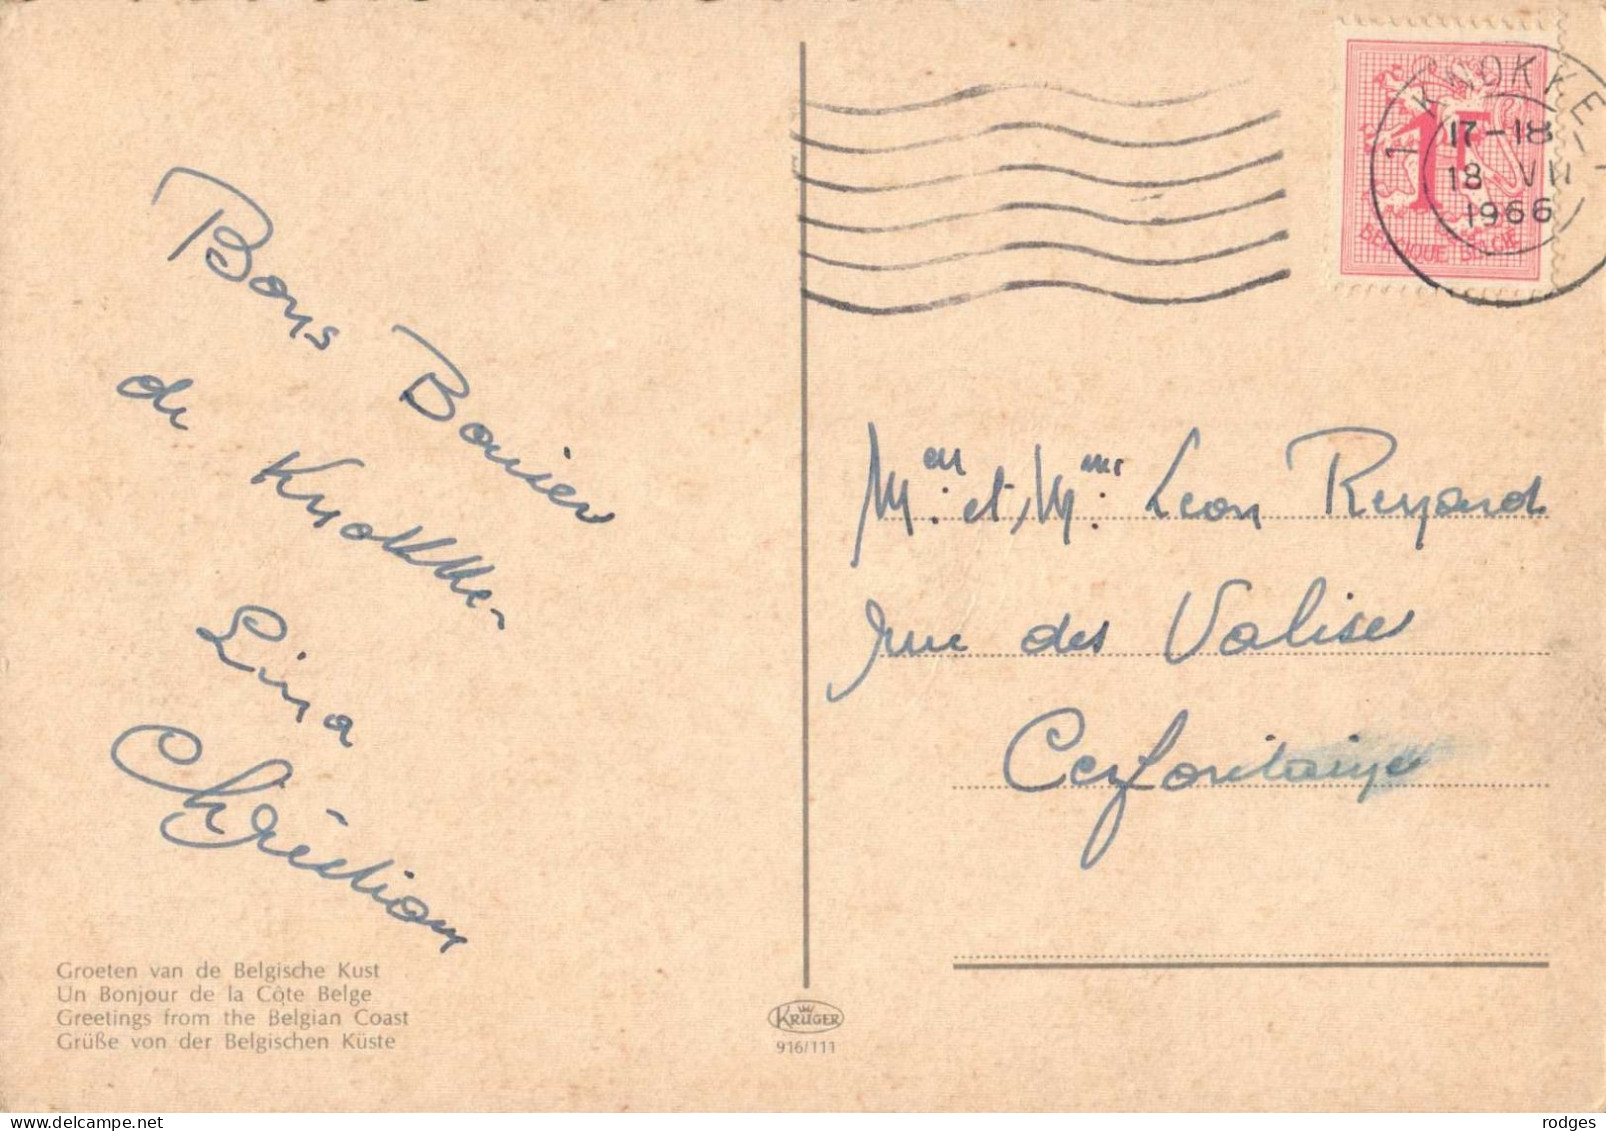 Bons Baisers
de Knokke
Lina
Christian
Groeten van de Belgische Kust
Un Bonjour de la Côte Belge
Greetings from the Belgian Coast
Grüße von der Belgischen Küste
KRÜGER
916/111
1 KNOKKE 1
17-18
18 VII
1966
1F
BELGIQUE BELGIË
Mon. et Mme. Leon Reyard
rue des Valises
Cerfontaine
rodges